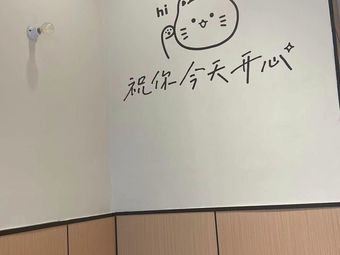 hi
祝你今天开心